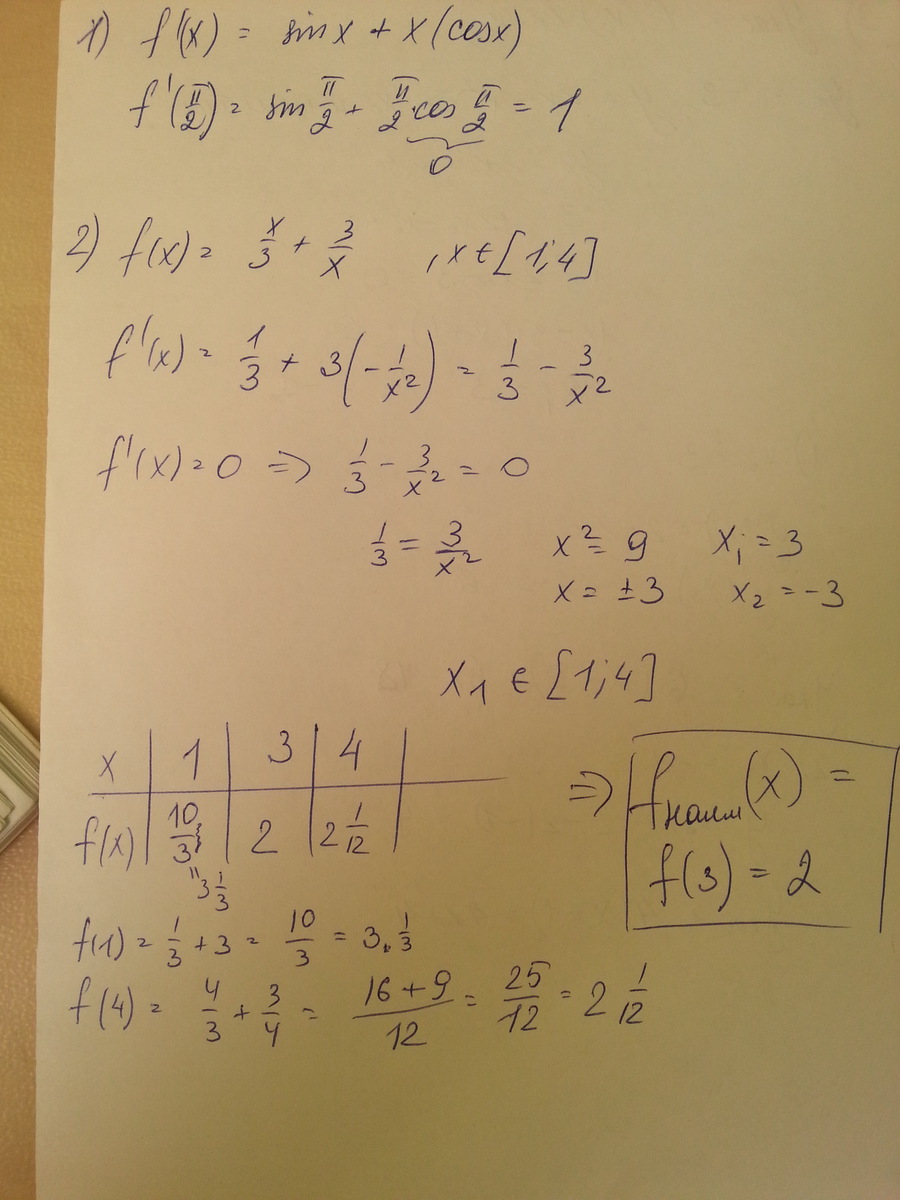 1) f'(x) = sinx + x(cosx)
f'(π/2) = sin π/2 + π/2 · cos π/2 = 1
0
2) f(x) = x/3 + 3/x , x ∈ [1;4]
f'(x) = 1/3 + 3(-1/x²) = 1/3 - 3/x²
f'(x) = 0 => 1/3 - 3/x² = 0
1/3 = 3/x² x² = 9 x₁ = 3
x = ±3 x₂ = -3
x₁ ∈ [1;4]
x | 1 | 3 | 4 |
f(x) | 10/3 | 2 | 2 1/12 |
" 3 1/3
=> fнаим(x) =
f(3) = 2
f(1) = 1/3 + 3 = 10/3 = 3 1/3
f(4) = 4/3 + 3/4 = (16+9)/12 = 25/12 = 2 1/12